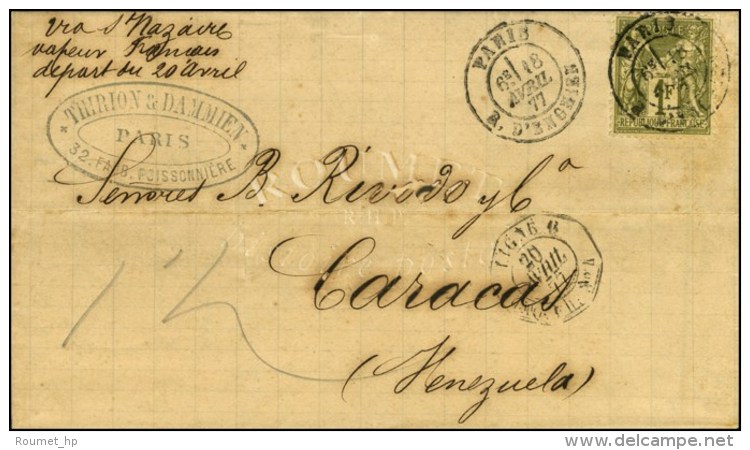 via St Nazaire
vapeur Français
départ du 20 avril
THIRION & DAMMIEN
PARIS
32. FAUB. POISSONNIÈRE
PARIS
6E / 18
AVRIL
77
R. D'ENGHIEN
PARIS
1F
REPUBLIQUE FRANÇAISE
ROUMET
Señores B. Rivodo y Ca
LIGNE B
20
AVRIL
77
Caracas
(Venezuela)
Roumet_hp
delcampe.net